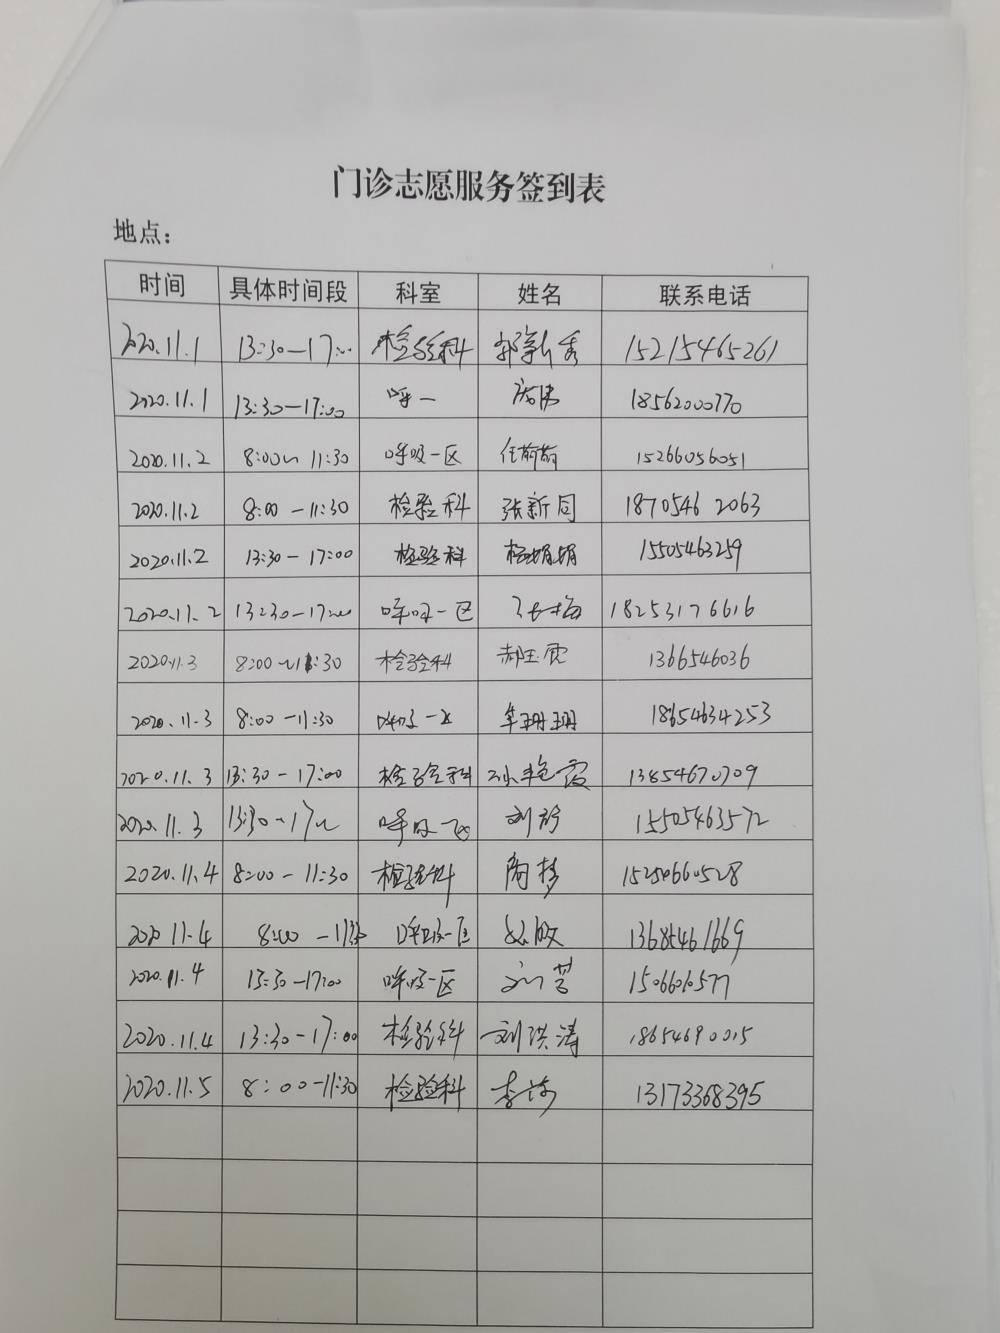 门诊志愿服务签到表
地点：
时间 具体时间段 科室 姓名 联系电话
2020.11.1 13:30—17:00 检验科 郭新秀 15215465261
2020.11.1 13:30—17:00 呼一 18562000770
2020.11.2 8:00~11:30 呼吸一区 任前前 15266056051
2020.11.2 8:00—11:30 检验科 张新同 18705462063
2020.11.2 13:30—17:00 检验科 杨娟娟 15505463259
2020.11.2 13:30—17:00 呼吸一区 18253176616
2020.11.3 8:00~11:30 检验科 郝玉霞 1366546036
2020.11.3 8:00—11:30 呼吸一区 牟珊珊 18654634253
2020.11.3 13:30—17:00 检验科 孙艳霞 13854670709
2020.11.3 13:30—17:00 呼吸一区 刘 15505463572
2020.11.4 8:00—11:30 检验科 陶梦 15250660528
2020.11.4 8:00—11:30 呼吸一区 13685461669
2020.11.4 13:30—17:00 呼吸一区 刘 1506606577
2020.11.4 13:30—17:00 检验科 刘洪涛 18654690015
2020.11.5 8:00—11:30 检验科 李 13173368395